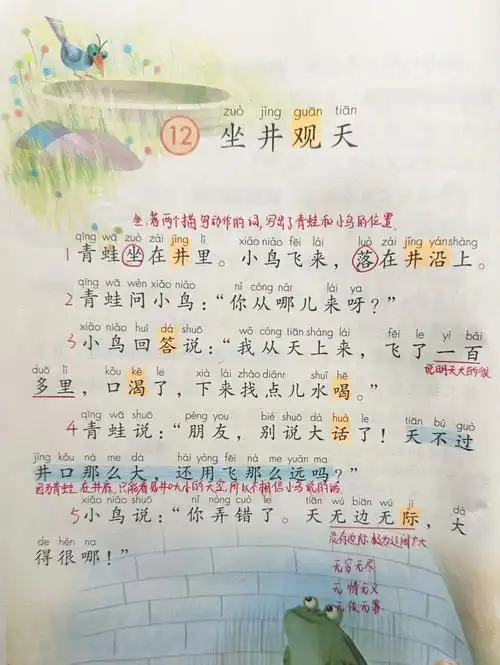 zuò jǐng guān tiān
12 坐井观天
坐、落两个描写动作的词,写出了青蛙和小鸟的位置.
qīng wā zuò zài jǐng lǐ xiǎo niǎo fēi lái luò zài jǐng yán shàng
1 青蛙坐在井里。小鸟飞来,落在井沿上。
qīng wā wèn xiǎo niǎo nǐ cóng nǎr lái ya
2 青蛙问小鸟:“你从哪儿来呀?”
xiǎo niǎo huí dá shuō wǒ cóng tiān shàng lái fēi le yì bǎi
3 小鸟回答说:“我从天上来,飞了一百
说明天大的很
duō lǐ kǒu kě le xià lái zhǎo diǎnr shuǐ hē
多里,口渴了,下来找点儿水喝。”
qīng wā shuō péng you bié shuō dà huà le tiān bú guò
4 青蛙说:“朋友,别说大话了!天不过
jǐng kǒu nà me dà hái yòng fēi nà me yuǎn ma
井口那么大,还用飞那么远吗?”
因为青蛙在井底,只能看到井口大小的天空,所以不相信小鸟说的话.
xiǎo niǎo shuō nǐ nòng cuò le tiān wú biān wú jì dà
5 小鸟说:“你弄错了。天无边无际,大
没有边际 极为辽阔广大
de hěn na
得很哪!”
无穷无尽
无情无义
无依无靠